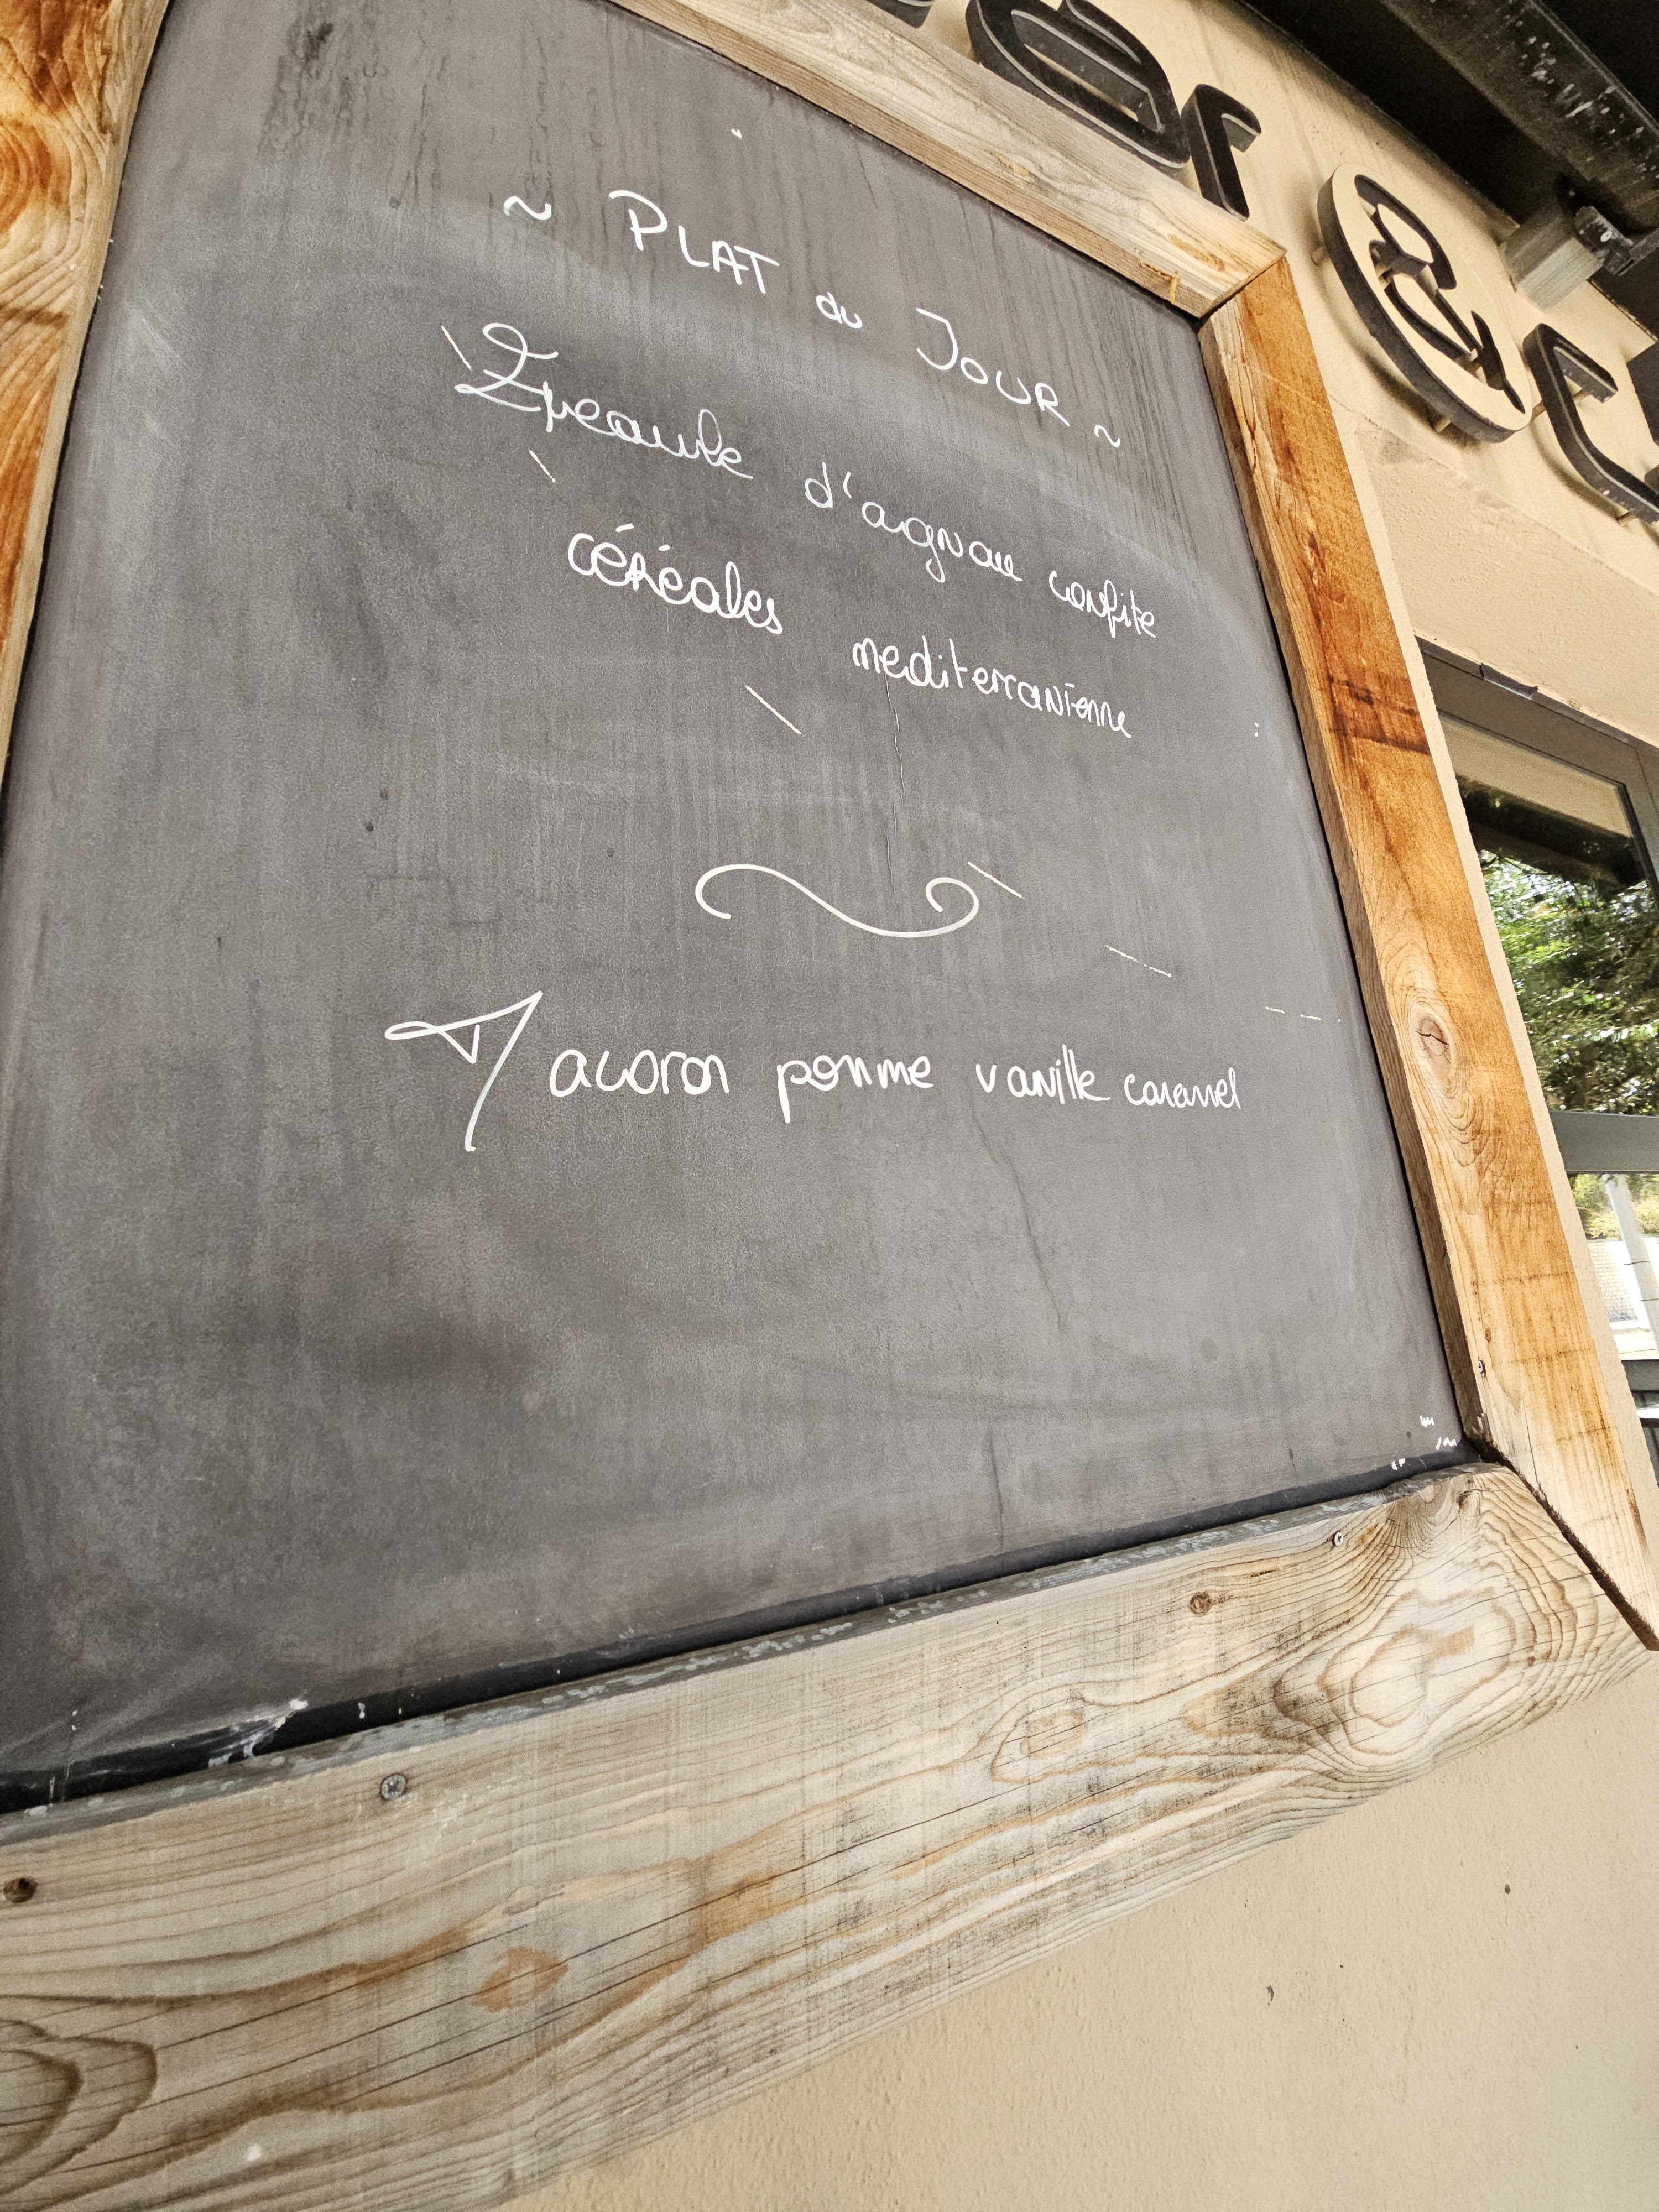 ~ PLAT du JOUR ~
Epeaule d'agneau confite
céréales mediterranienne
Macaron pomme vanille caramel
&